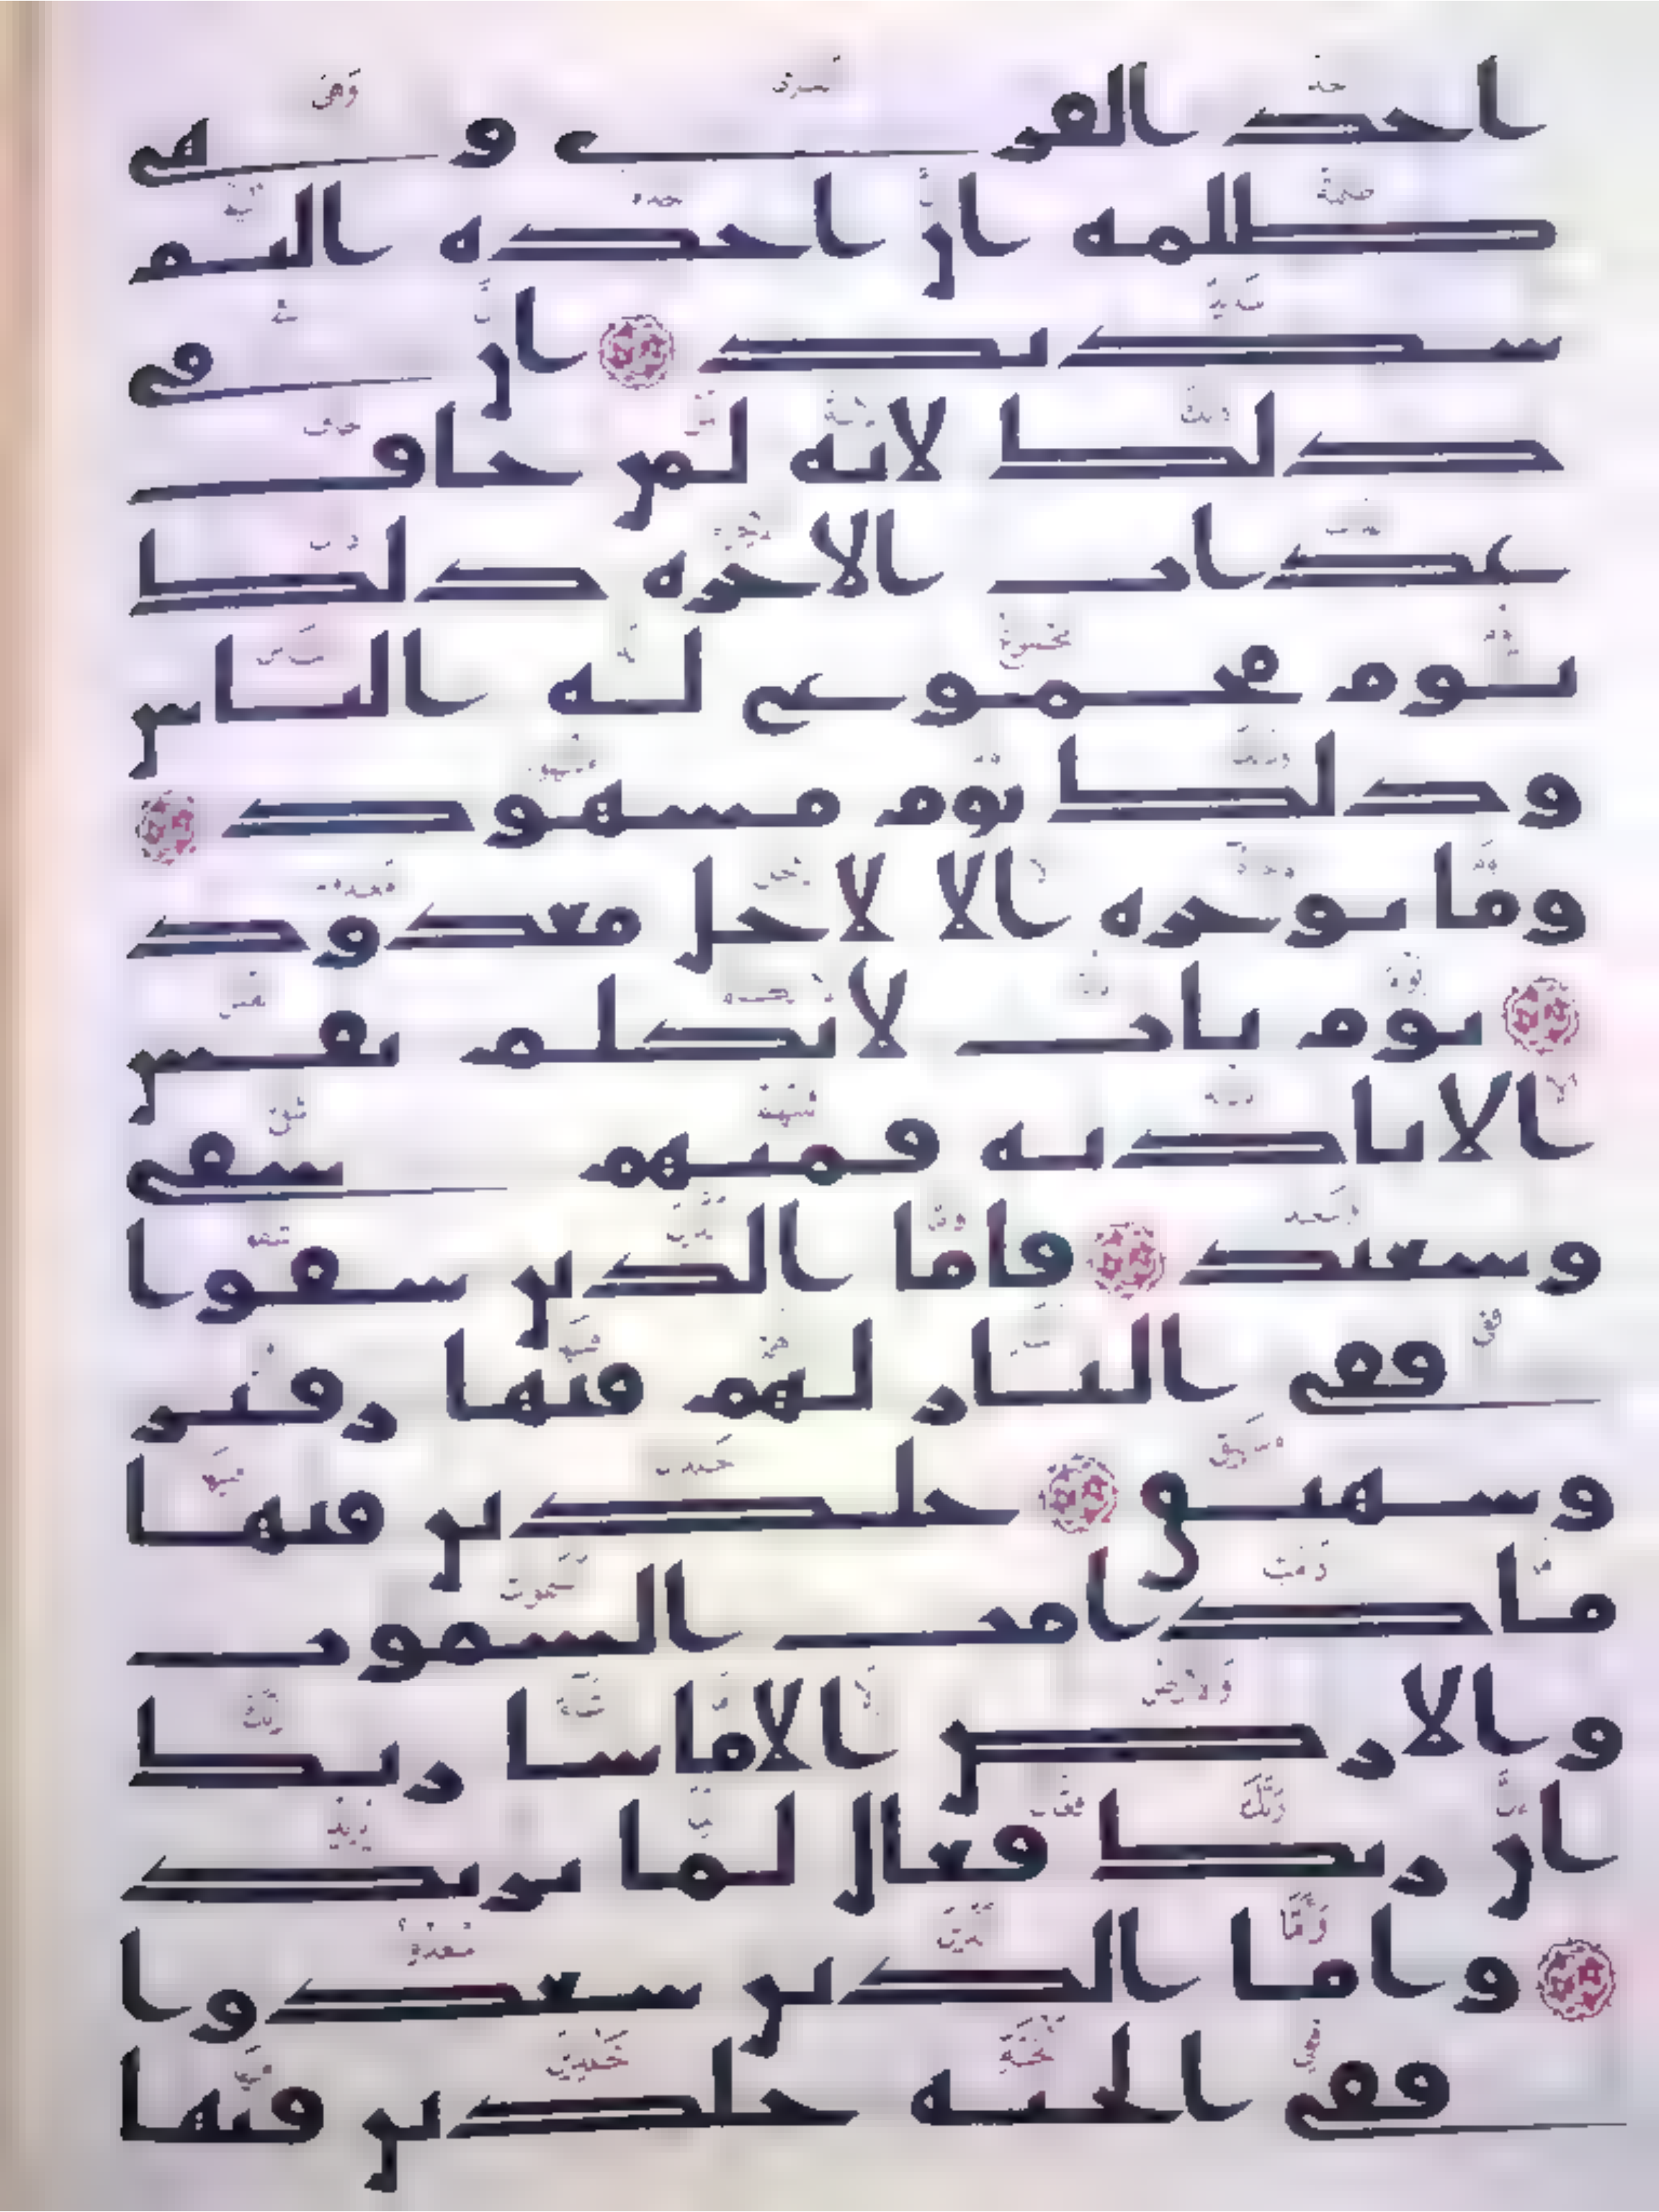 اخذ القرى وهي
ظلمة ان اخذه اليم
شديد ان في
ذلك لاية لمن خاف
عذاب الاخرة ذلك
يوم مجموع له الناس
وذلك يوم مشهود
وما نوخره الا لاجل معدود
يوم يات لا تكلم نفس
الا باذنه فمنهم شقي
وسعيد فاما الذين شقوا
ففي النار لهم فيها زفير
وشهيق خلدين فيها
ما دامت السموت
والارض الا ما شا ربك
ان ربك فعال لما يريد
واما الذين سعدوا
ففي الجنة خلدين فيها